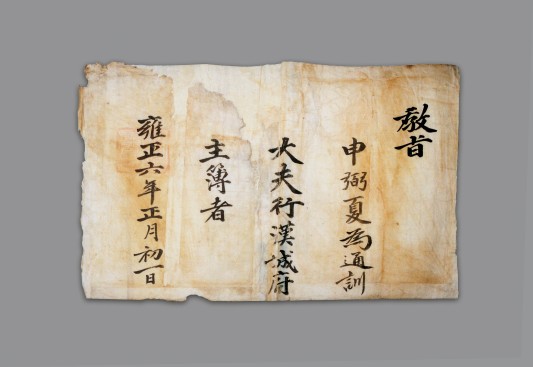 敎旨
申弼夏為通訓
大夫行漢城府
主簿者
雍正六年正月初一日